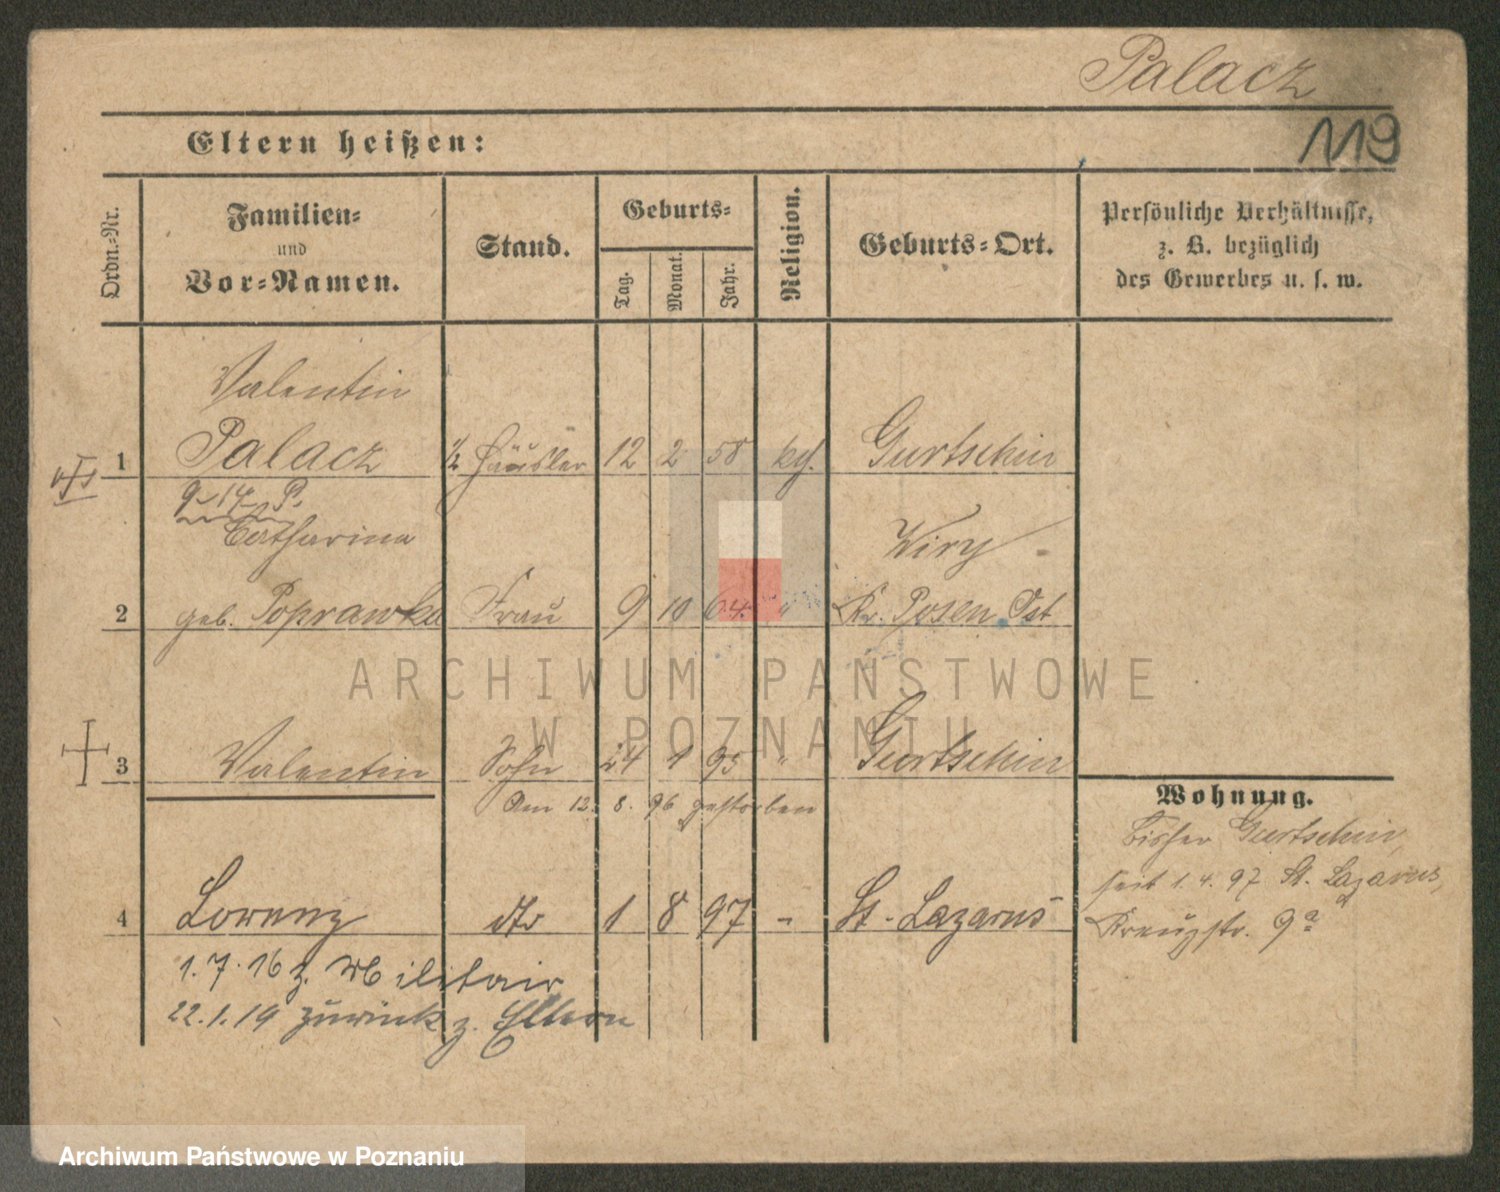 Palacz
119
Eltern heißen:
Ordn.-Nr.
Familien-
und
Vor-Namen.
Stand.
Geburts-
Tag.
Monat.
Jahr.
Religion.
Geburts-Ort.
Persönliche Verhältnisse,
z. B. bezüglich
des Gewerbes u. s. w.
Valentin
1 Palacz Häusler 12 2 58 kth. Gurtschin
Catharina Wiry
2 geb. Poprawka Frau 9 10 64. " Kr. Posen Ost
3 Valentin Sohn 24 1 95 " Gurtschin
Am 12. 8. 96 gestorben
4 Lorenz dto 1 8 97 - St. Lazarus
1.7.16 z. Militair
22.1.19 zurück z. Eltern
Wohnung.
bisher Gurtschin,
seit 1. 4. 97 St. Lazarus,
Kreuzstr. 9a
ARCHIWUM PAŃSTWOWE
W POZNANIU
Archiwum Państwowe w Poznaniu